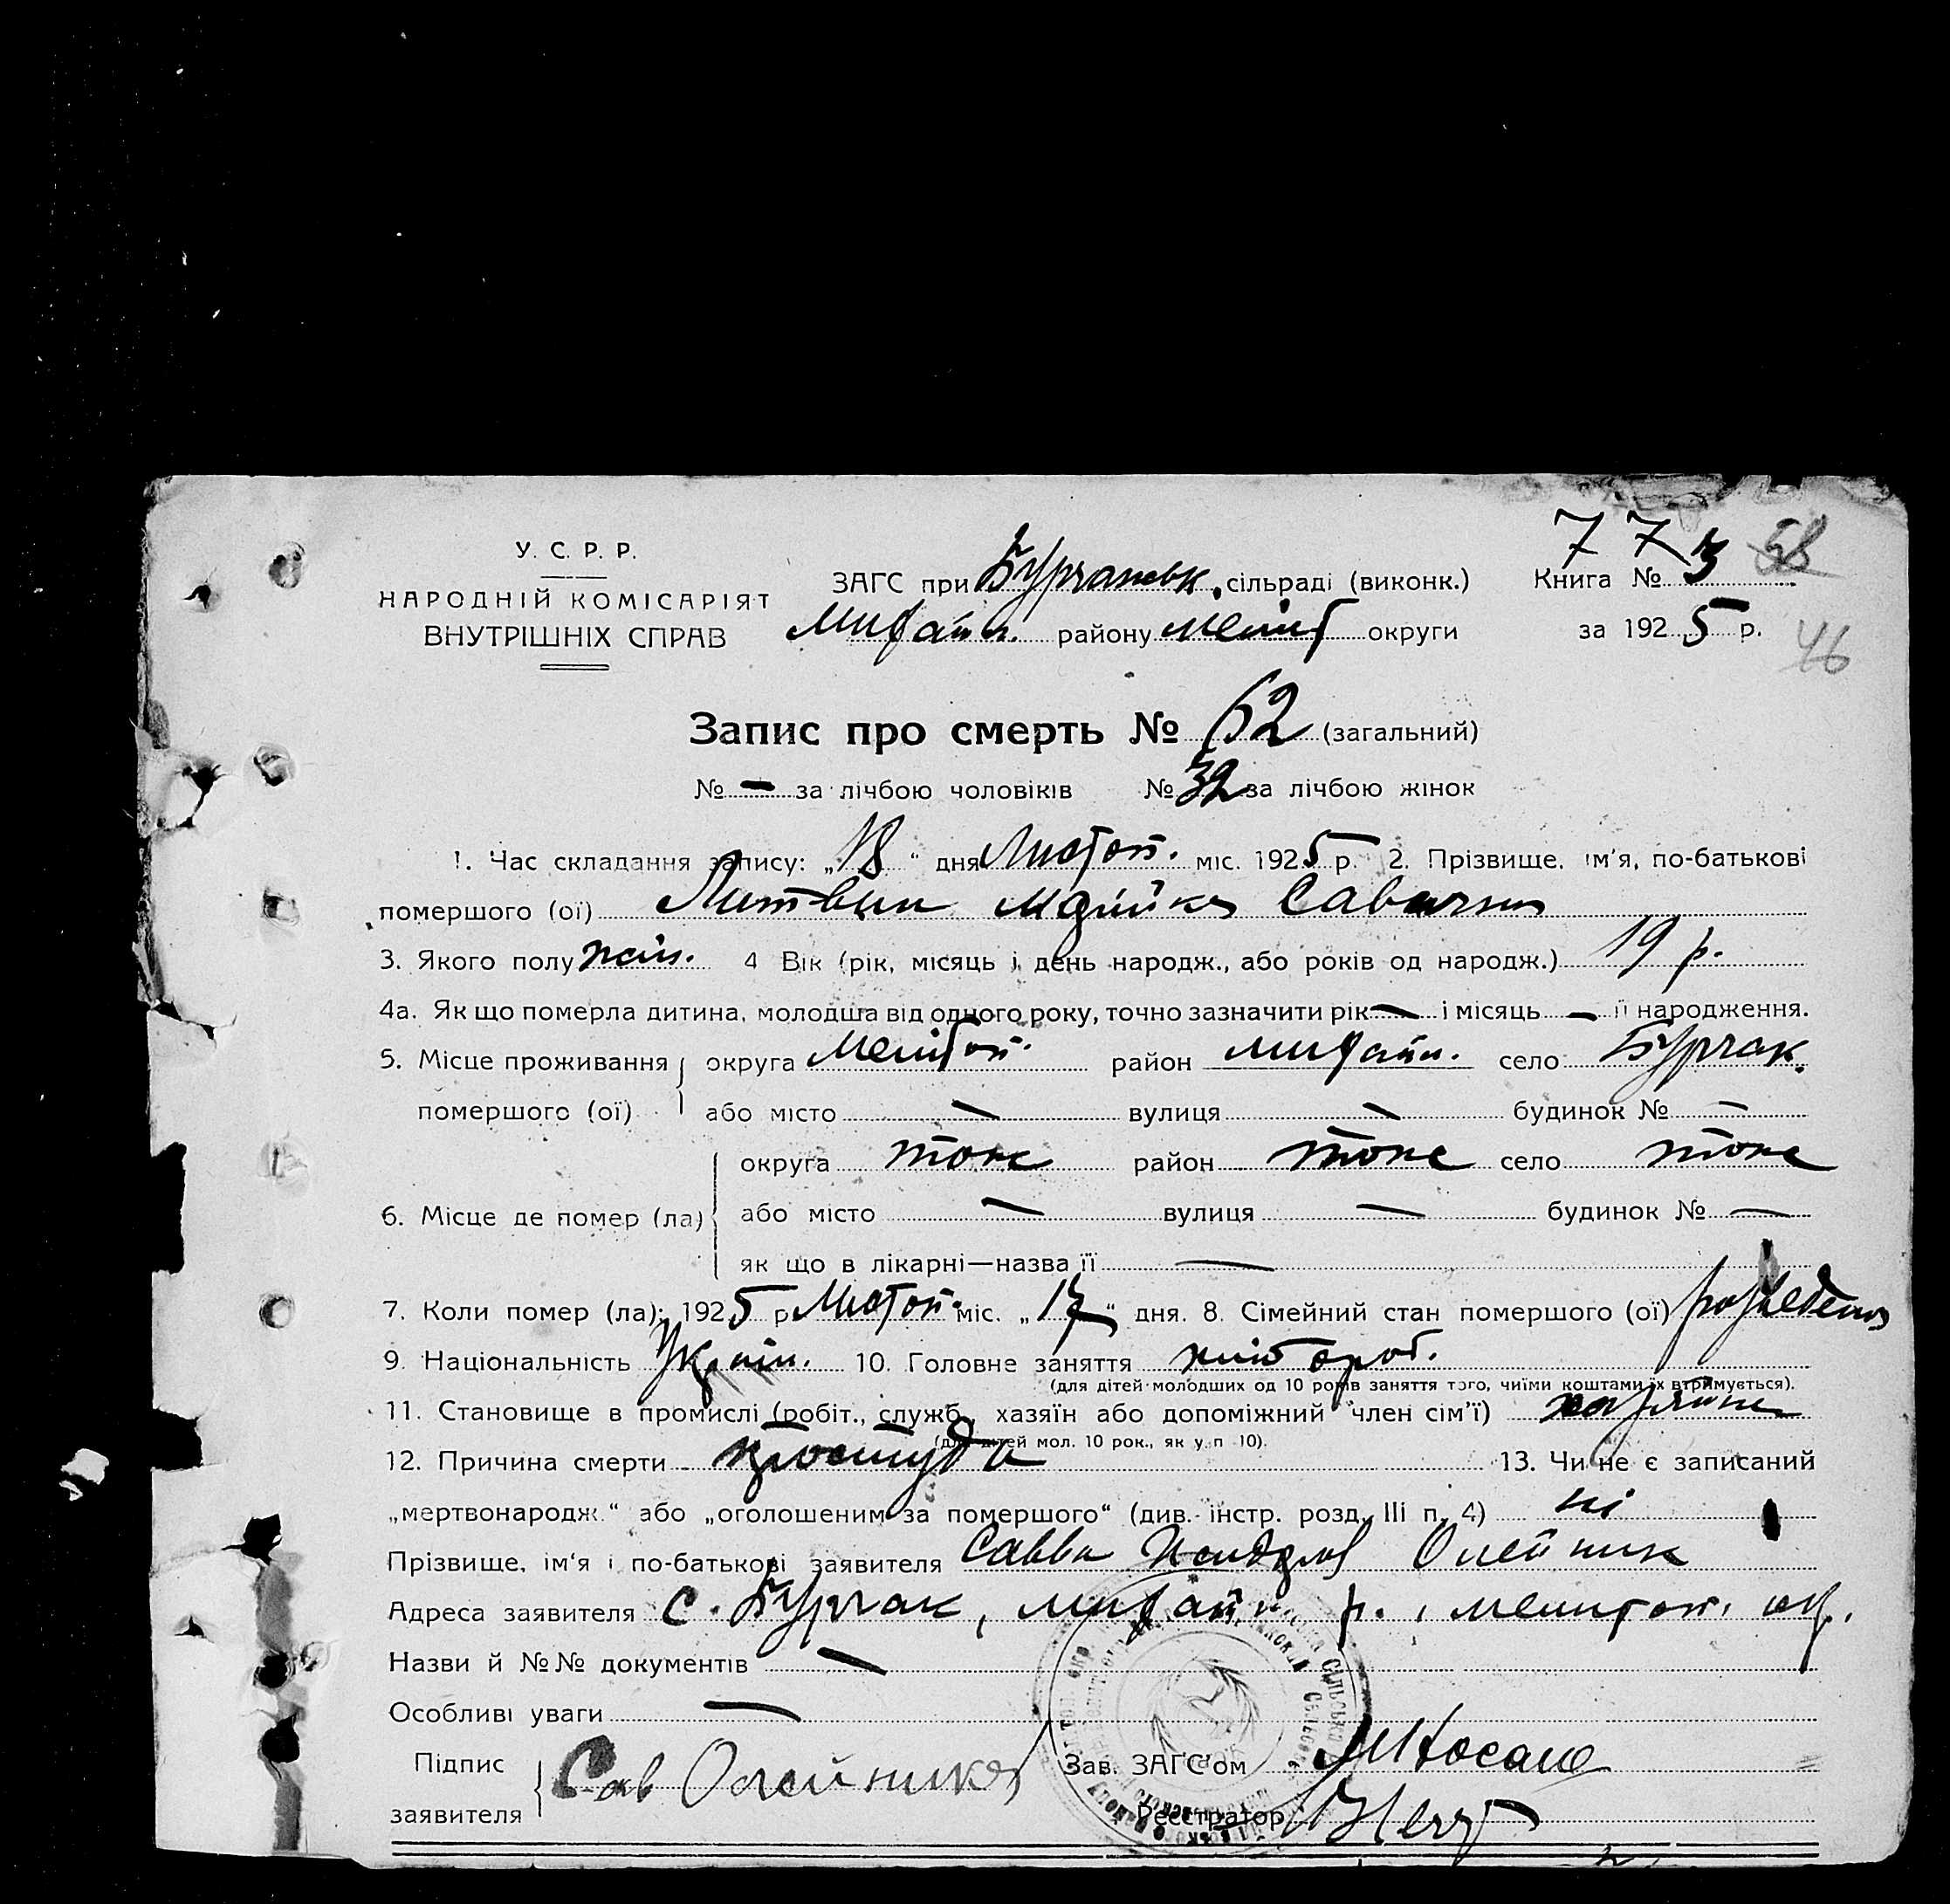 7 7 58
У. С. Р. Р.
НАРОДНІЙ КОМІСАРІЯТ
ВНУТРІШНІХ СПРАВ
ЗАГС при Бурчанськ. сільраді (виконк.) Книга № 3
Михайл. району меліт округи за 1925 р.
46
Запис про смерть № 62 (загальний)
№ — за лічбою чоловіків № 32 за лічбою жінок
1. Час складання запису: „18" дня Листоп. міс. 1925 р. 2. Прізвище, ім'я, по-батькові
помершого (ої) Литвин Савична
3. Якого полу жін. 4 Вік (рік, місяць і день народж., або років од народж.) 19 р.
4а. Як що померла дитина, молодша від одного року, точно зазначити рік — і місяць — її народження.
5. Місце проживання округа Мелітоп. район михайл. село Бурчак.
помершого (ої) або місто — вулиця — будинок № —
округа тоже район тоже село тоже
6. Місце де помер (ла) або місто — вулиця — будинок № —
як що в лікарні—назва її —
7. Коли помер (ла): 1925 р Листоп. міс. „17" дня. 8. Сімейний стан помершого (ої) розведена
9. Національність Україн. 10. Головне заняття хлібороб.
(для дітей молодших од 10 років заняття того, чиїми коштами їх втримується).
11. Становище в промислі (робіт., служб., хазяїн або допоміжний член сім'ї) хазяйка
(для дітей мол. 10 рок., як у п 10).
12. Причина смерти простуда 13. Чи не є записаний
„мертвонародж." або „оголошеним за помершого" (див. інстр. розд. III п. 4) ні
Прізвище, ім'я і по-батькові заявителя Савва Олейник
Адреса заявителя с. Бурчак, михайл р., мелитоп. окр.
Назви й №№ документів —
Особливі уваги —
Підпис
заявителя Сав Олейника
Зав. ЗАГС'ом
Реєстратор